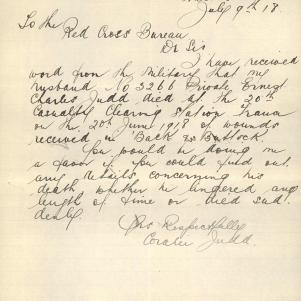 July 9th 18.
To the
Red Cross Bureau
Dr Sir
I have received
word from the Military that my
husband, No 3266 Private Ernest
Charles Judd died at the 20th
Casualty Clearing Station France
on the 20th June 1918 of wounds
received in Back & Buttock.
You would be doing me
a favor if you could find out
any details concerning his
death, whether he lingered any
length of time or died sud-
denly.
Yrs Respectfully
Judd.